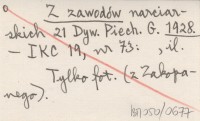 Z zawodów narciar-
skich 21 Dyw. Piech. G. 1928.
– IKC 19, nr 73: , il.
Tylko fot. (z Zakopa-
nego).